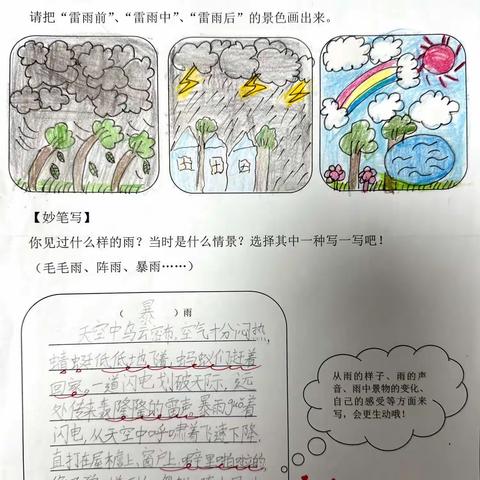 请把“雷雨前”、“雷雨中”、“雷雨后”的景色画出来。
【妙笔写】
你见过什么样的雨？当时是什么情景？选择其中一种写一写吧！
（毛毛雨、阵雨、暴雨……）
（ 暴 ）雨
天空中乌云密布,空气十分闷热,
蜻蜓低低地飞着,蚂蚁们赶着
回家。一道闪电,划破天际,远
处传来轰隆隆的雷声,暴雨 着
闪电,从天空中呼啸着飞速下降,
直打在屋檐上、窗户上,噼里啪啦的,
从雨的样子、雨的声
音、雨中景物的变化、
自己的感受等方面来
写，会更生动哦！